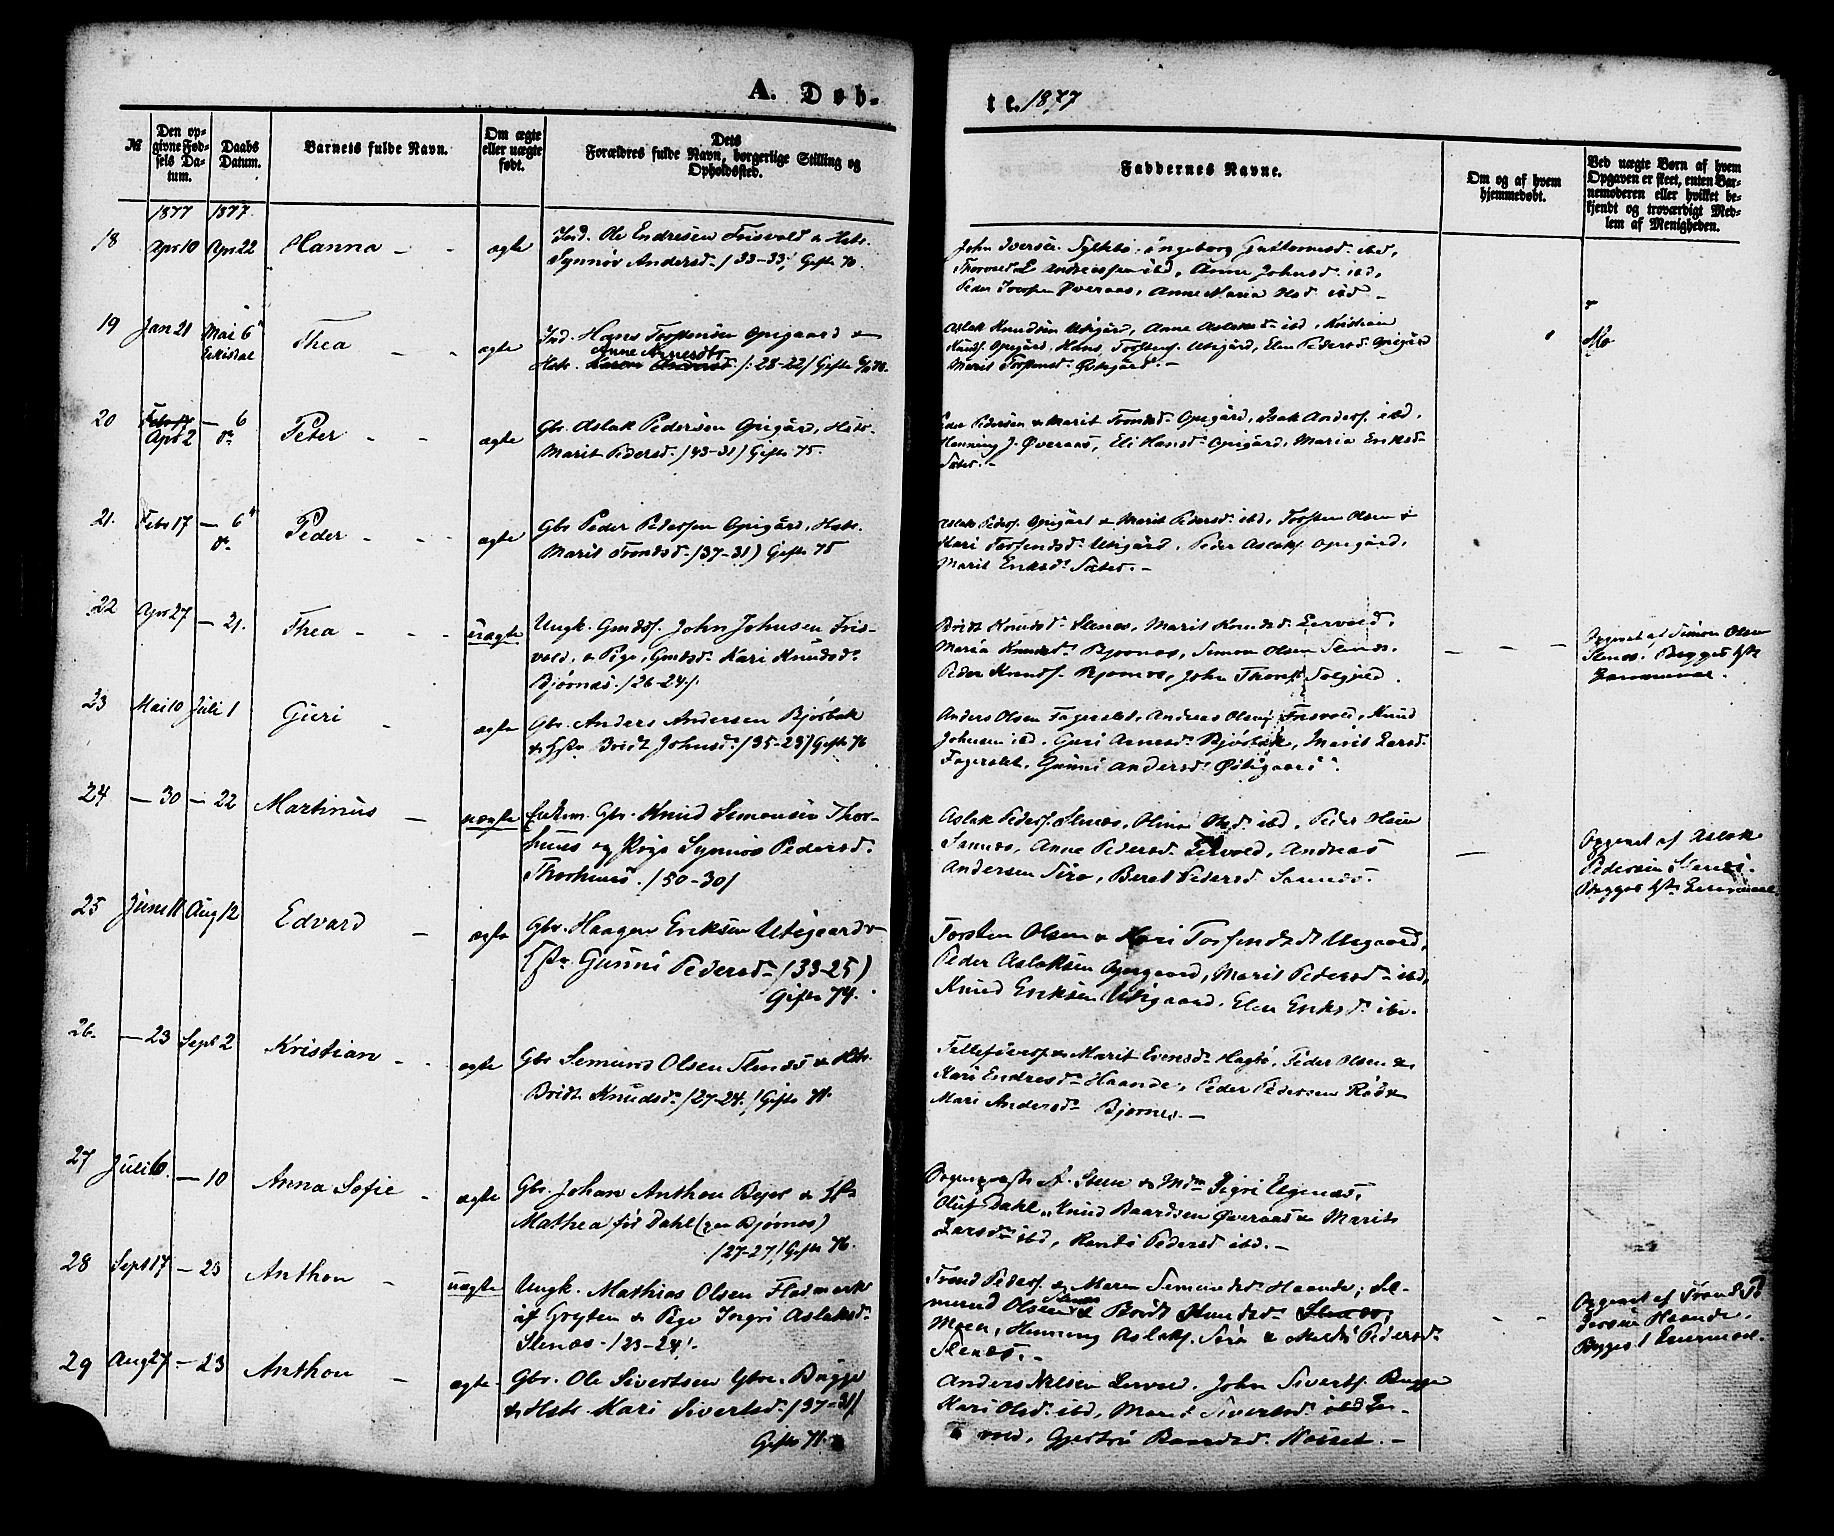 A. Døb-
te. 1877
№
Den opgivne Fødsels Datum.
Daabs Datum.
Barnets fulde Navn.
Om ægte eller uægte født.
Dets Forældres fulde Navn, borgerlige Stilling og Opholdssted.
Faddernes Navne.
Om og af hvem hjemmedøbt.
Ved uægte Børn af hvem Opgaven er skeet, enten Barnemoderen eller hvilket bekjendt og troværdigt Medlem af Menigheden.
1877 1877.
18 Apr 10 Apr 22 Hanna - - ægte Ind. Ole Endresen Frisvold & Hstr.
Synnøv Andersd. /33-33/ Gifte 76.
John Iversen Sylttebø, Ingeborg ibd,
Thorvald L Andreassen ibd, Anne Johnsd. ibd,
Peder Øveraas, Anne Maria Olsd ibd -
19 Jan 21 Mai 6 Thea - - ægte Ind. Hans Torstensen Opigaard &
Anne Arnesdtr
Hstr. /:28-22/ Gifte 76.
Aslak Knudsen Utigård, Anne Aslaksd ibd, Kristian
Knuds. Opigård, Hans Torstens. Utigård, Elen Pedersd Opigård
Marit Torstensd. Utigård. -
Mo
20 Apr 2 - 6 Peter - - ægte Gbr. Aslak Pedersen Opigård, Hstr.
Marit Pedersd. /43-31/ Gifte 75.
Peder Pedersen & Marit Trondsd. Opigård, Isak Anders. ibd.
Henning J. Øveraas, Eli Hansd. Opigård, Maria Eriksd.
Sæter. -
21. Febr 17 - 6 Peder - - - ægte Gbr Peder Pedersen Opigård, Hstr.
Marit Trondsd. /37-31) Gifte 75
Aslak Peders. Opigård & Marit Pedersd. ibd, Torsten Olsen &
Kari Torfendsd. Utigård, Peder Aslaks. Opigård,
Marit Eriksd. Sæter. -
22 Apr 27 - 21. Thea - - - uægte Ungk. Gmds. John Johnsen Fris-
vold, & Pige, Gmdsd. Kari Knudsd.
Bjørnes. /26-24/.
Bridt Knudsd. Slenes, Marit Knudsd. Lervold,
Maria Knudsd. Bjørnes, Simon Olsen Slenes.
Peder Knuds. Bjørnes, John Thors. Solgjeld.
- - -
Opgivet af Simon Olsen
Slenes. Begges 1ste
Leiermaal.
23 Mai 10 Juli 1 Guri - ægte Gbr. Anders Andersen Bjørbæk
& Hstr. Bridt Johnsd. /35-23/ Gifte 76
Anders Olsen Fagerslet, Andreas Olsen Frisvold, Knud
Johnsen ibd. Guri Arnesd. Bjørbæk, Marit Larsd.
Fagerslet, Gunni Andersd. Østigaard.
24 - 30 - 22 Martinus - uægte Enkem. Gbr. Knud Semonsen Thor-
huus og Pige Synnøv Pedersd.
Thorhuus. /50-30/
Aslak Peders. Slenes, Olina Olsd. ibd, Peder Olsen
Slenes, Anne Pedersd. Lervold, Andreas
Andersen Sira, Beret Pedersd. Slenes.
-
Opgivet af Aslak
Pedersen Slenes.
Begges 1ste Leiermaal
25 Juni 11 Aug 12 Edvard - ægte Gbr. Haagen Eriksen Utigaard &
Hstr. Gunni Pedersd. /33-25)
Gifte 74.
Torsten Olsen & Kari Torfendsd. Utigaard,
Peder Aslaksen Opigaard, Marit Pedersd. ibd,
Knud Eriksen Utigaard, Elen Eriksd. ibd.
26. - 23 Sept 2 Kristian - - ægte Gbr. Semund Olsen Slenes & Hstr.
Bridt Knudsd. /27-24./ Gifte 71.
& Marit Evensd. Hagbø, Peder Olsen &
Kari Endresd. Haande, Peder Pedersen Rød &
Mari Andersd. Bjørnes. -
27 Juli 6. - 10 Anna Sofie - ægte Gbr. Johan Anthon Beyer & H.
Mathea før Dahl (paa Bjørnes)
/27-27,/ Gifte 76.
Stene & Mdm. Sigri Utgenes,
Oluf Dahl, Knud Baardsen Øveraas & Marit
Larsd. ibd, Randi Pedersd ibd. -
28 Sept 17 - 23 Anthon - uægte Ungk. Mathias Olsen Flatmark
af Grytten & Pige Ingri Aslaksd.
Slenes - /23-24/.
Trond Peders. & Maren Semundsd. Haande, Se-
mund Olsen Slenes & Bridt Knudsd. Slenes,
Moen, Henning Aslaks. Sira & Marit Pedersd.
Slenes. -
- -
Opgivet af Trond Pe-
dersen Haande.
Begges 1 Leiermaal.
29 Aug 27 - 23 Anthon - ægte. Gbr. Ole Sivertsen Gbr. Bugge
& Hstr. Kari Sivertsd. /37-31/
Gifte 71.
Anders Nilsen Lervold. John Siverts. Bugge
Kari Olsd. ibd, Marit Sivertsd. Ler-
vold, Gjertru Baardsd. Nesset. -